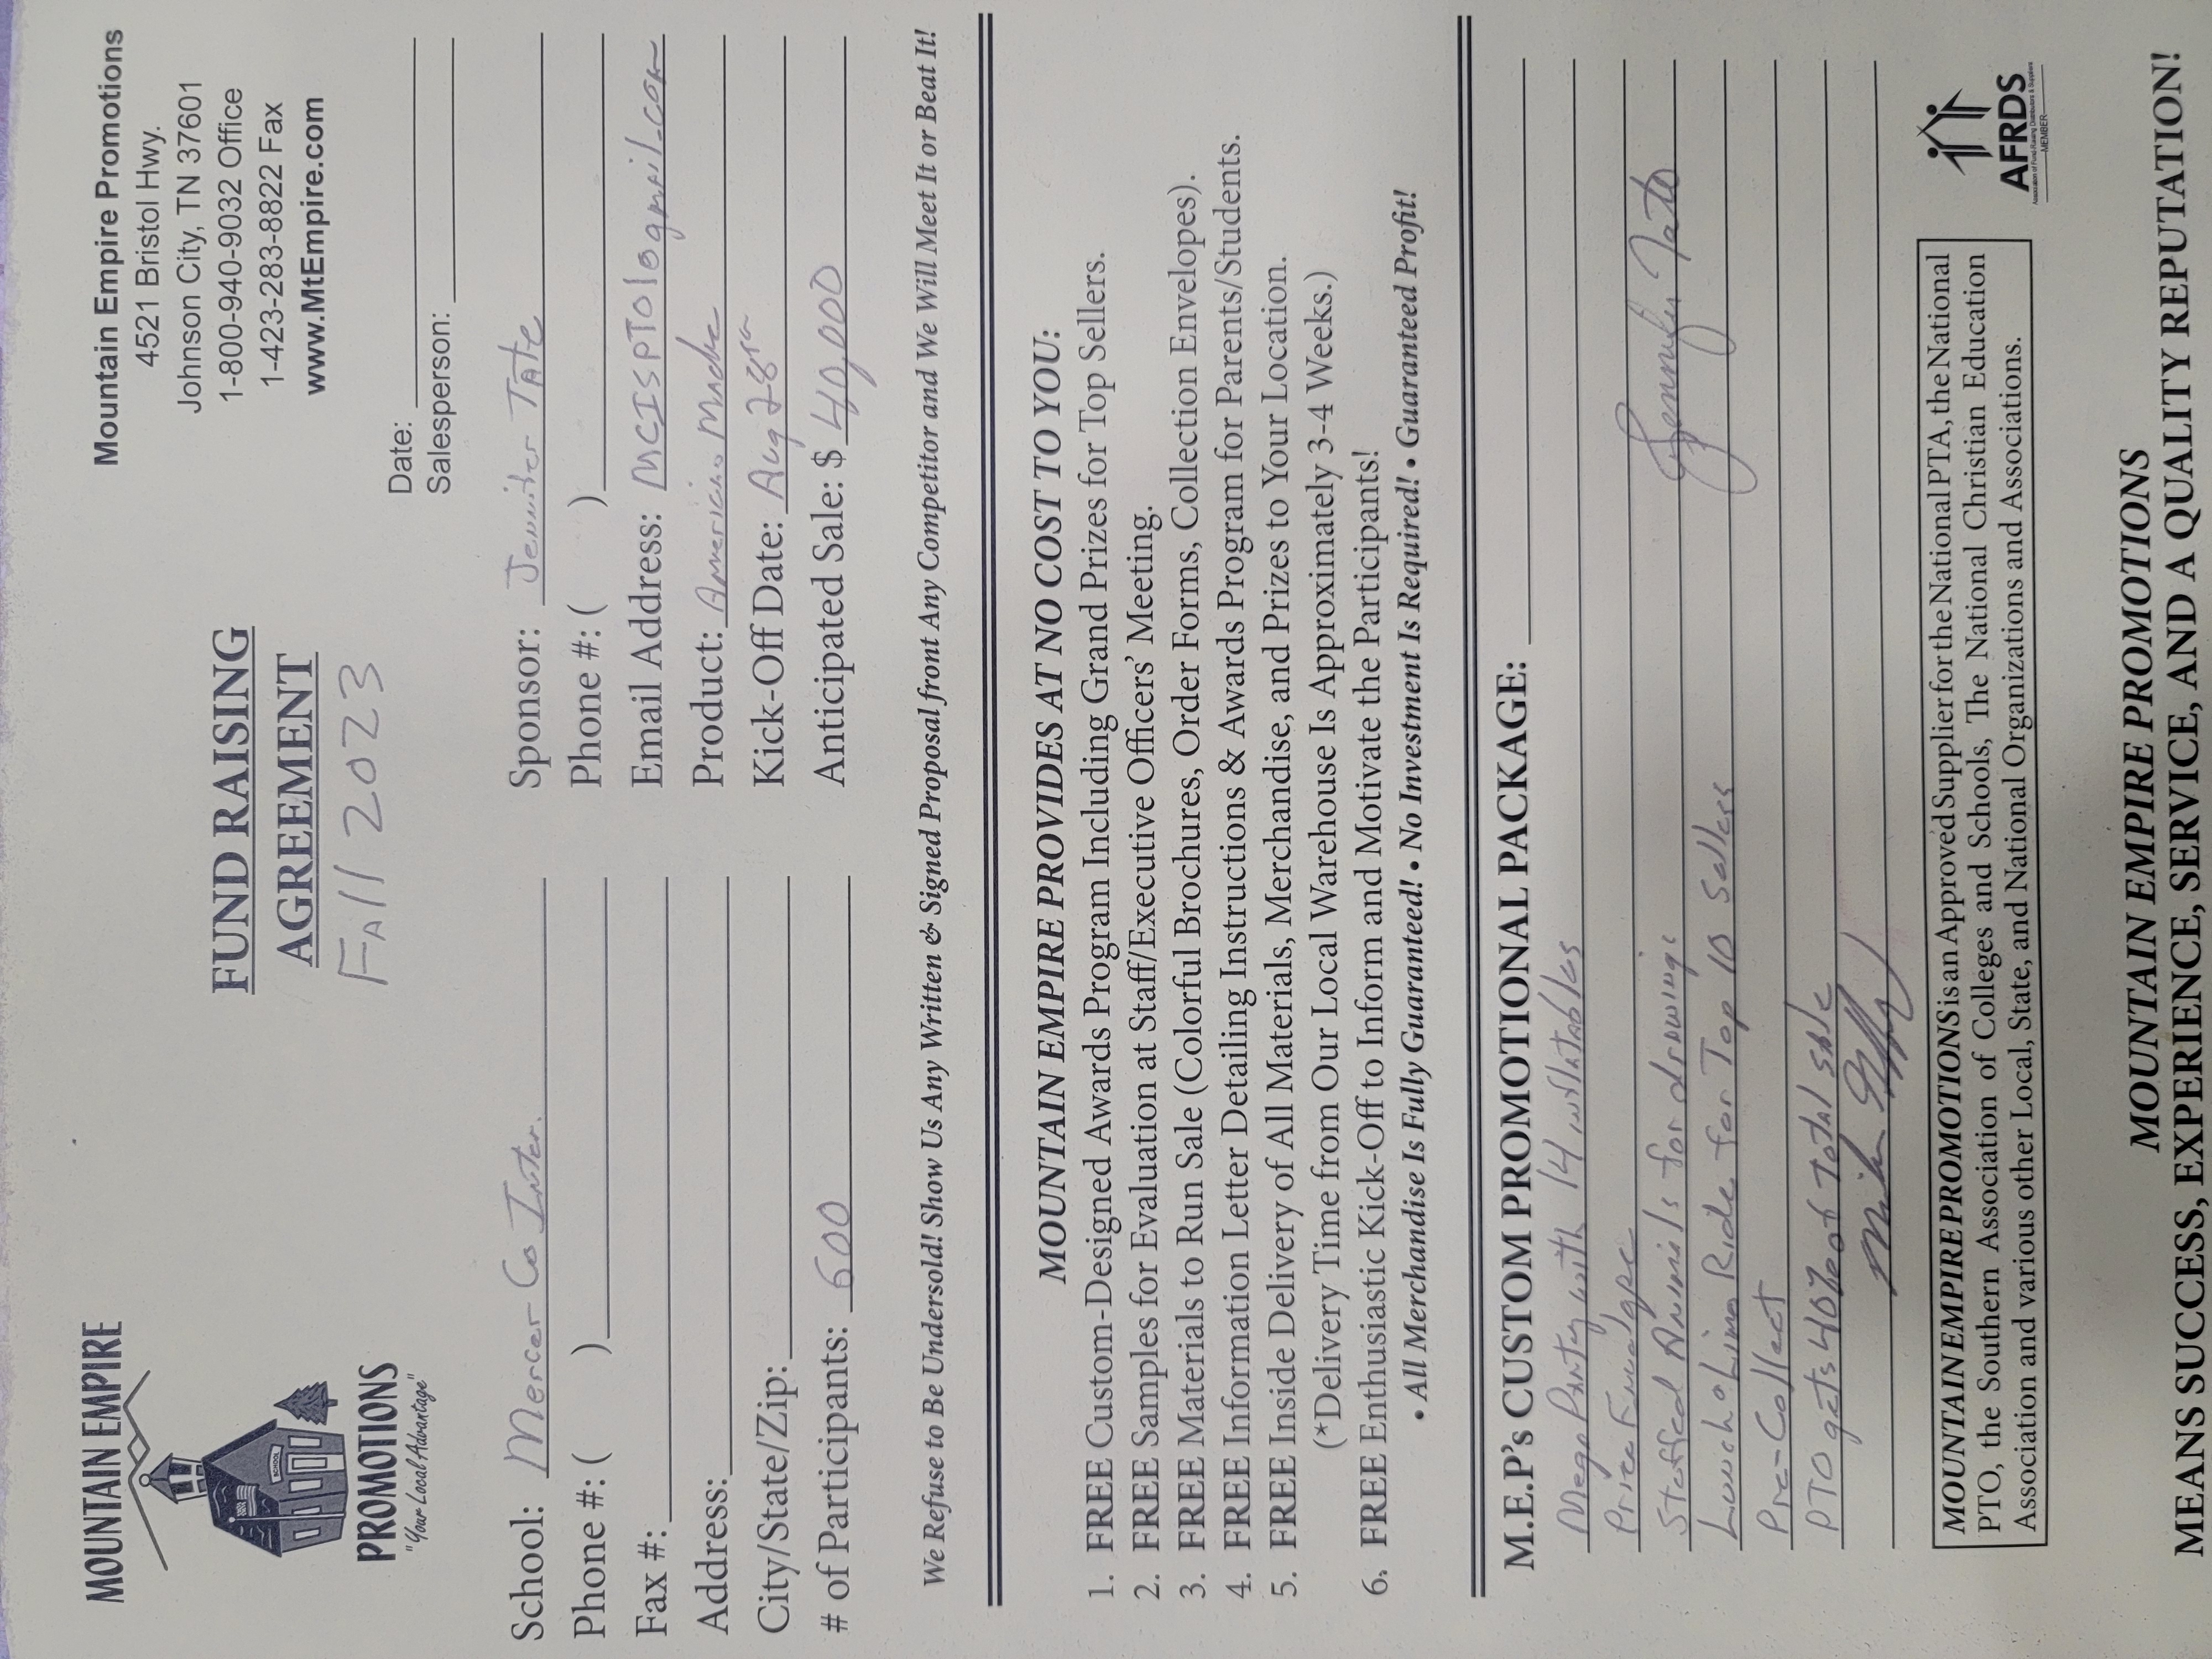 MOUNTAIN EMPIRE
SCHOOL
PROMOTIONS
"Your Local Advantage"
FUND RAISING
AGREEMENT
Fall 2023
Mountain Empire Promotions
4521 Bristol Hwy.
Johnson City, TN 37601
1-800-940-9032 Office
1-423-283-8822 Fax
www.MtEmpire.com
Date:
Salesperson:
School: Mercer Co Inter.
Phone #: ( )
Fax #:
Address:
City/State/Zip:
# of Participants: 600
Sponsor: Jennifer Tate
Phone #: ( )
Email Address: MCISPTO1@gmail.com
Product: Americas Made
Kick-Off Date: Aug 28th
Anticipated Sale: $ 40,000
We Refuse to Be Undersold! Show Us Any Written & Signed Proposal front Any Competitor and We Will Meet It or Beat It!
MOUNTAIN EMPIRE PROVIDES AT NO COST TO YOU:
1. FREE Custom-Designed Awards Program Including Grand Prizes for Top Sellers.
2. FREE Samples for Evaluation at Staff/Executive Officers' Meeting.
3. FREE Materials to Run Sale (Colorful Brochures, Order Forms, Collection Envelopes).
4. FREE Information Letter Detailing Instructions & Awards Program for Parents/Students.
5. FREE Inside Delivery of All Materials, Merchandise, and Prizes to Your Location.
(*Delivery Time from Our Local Warehouse Is Approximately 3-4 Weeks.)
6. FREE Enthusiastic Kick-Off to Inform and Motivate the Participants!
• All Merchandise Is Fully Guaranteed! • No Investment Is Required! • Guaranteed Profit!
M.E.P.'s CUSTOM PROMOTIONAL PACKAGE:
Mega Party with 14 inflatables
Prize Envelope
Stuffed Animals for drawings
Lunch & Limo Ride for Top 10 Sellers
Pre-Collect
PTO gets 40% of Total sale
Jennifer Tate
MOUNTAIN EMPIRE PROMOTIONS is an Approved Supplier for the National PTA, the National
PTO, the Southern Association of Colleges and Schools, The National Christian Education
Association and various other Local, State, and National Organizations and Associations.
AFRDS
Association of Fund-Raising Distributors & Suppliers
MEMBER
MOUNTAIN EMPIRE PROMOTIONS
MEANS SUCCESS, EXPERIENCE, SERVICE, AND A QUALITY REPUTATION!